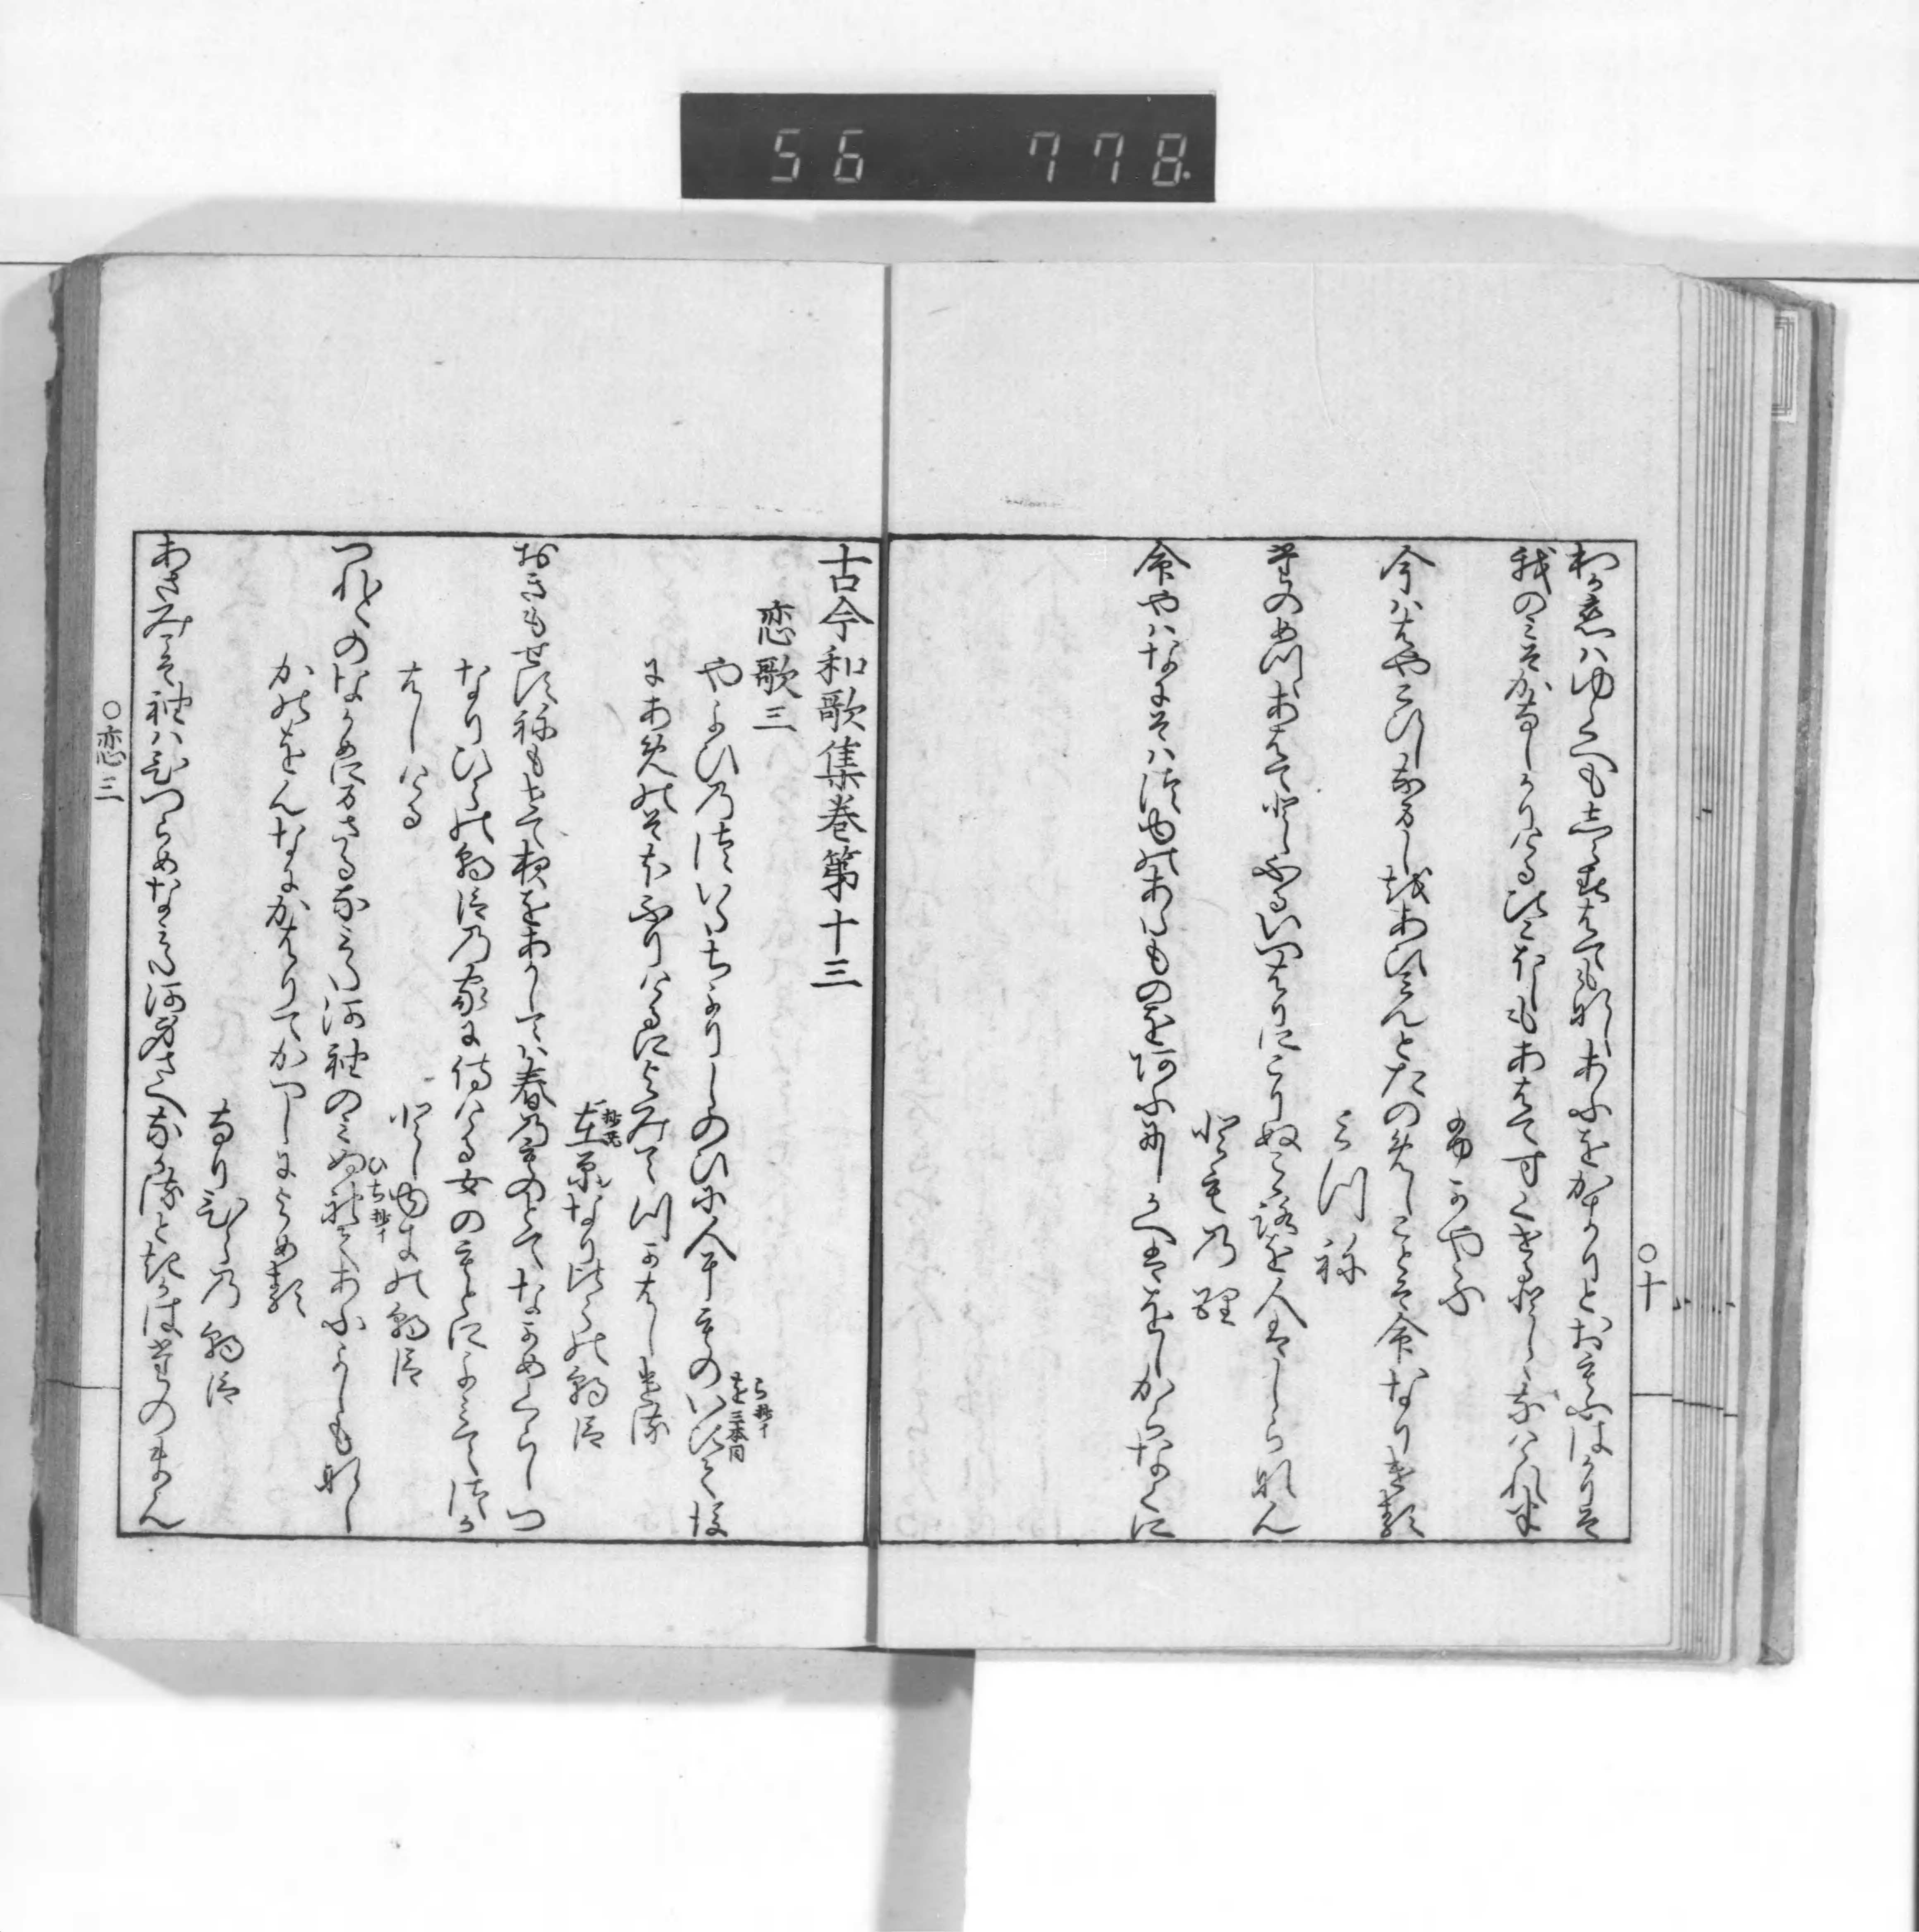 56 778.
○十
わか恋はゆくへもしらすはてもなしあふをかきりとおもふはかりそ
我のみそかなしかりけるひこほしもあはてすくせるとしゝなけれは
ふかやふ
今ははやこひしなましをあひみんとたのめしことそ命なりける
みつね
たのめつゝあはてとしふるいつはりにこりぬこゝろを人はしらなん
とものり
命やはなにそはつゆのあたものをあふにしかへはをしからなくに
古今和歌集巻第十三
恋歌三
やよひのついたちよりしのひに人にものいひて後
ら抄イ
を三本同
にあめのそほふりけるによみてつかはしける
抄无
在原なりひらの朝臣
おきもせすねもせて夜をあかしては春のものとてなかめくらしつ
なりひらの朝臣の家に侍ける女のもとによみてつか
はしける
としゆきの朝臣
つれ〳〵のなかめにまさるなみた河袖のみぬれてあふよしもなし
ひち抄イ
かのをんなにかはりてかへしによめる
なりひらの朝臣
あさみこそ袖はひつらめなみた河身さへなかるときかはたのまん
○恋三